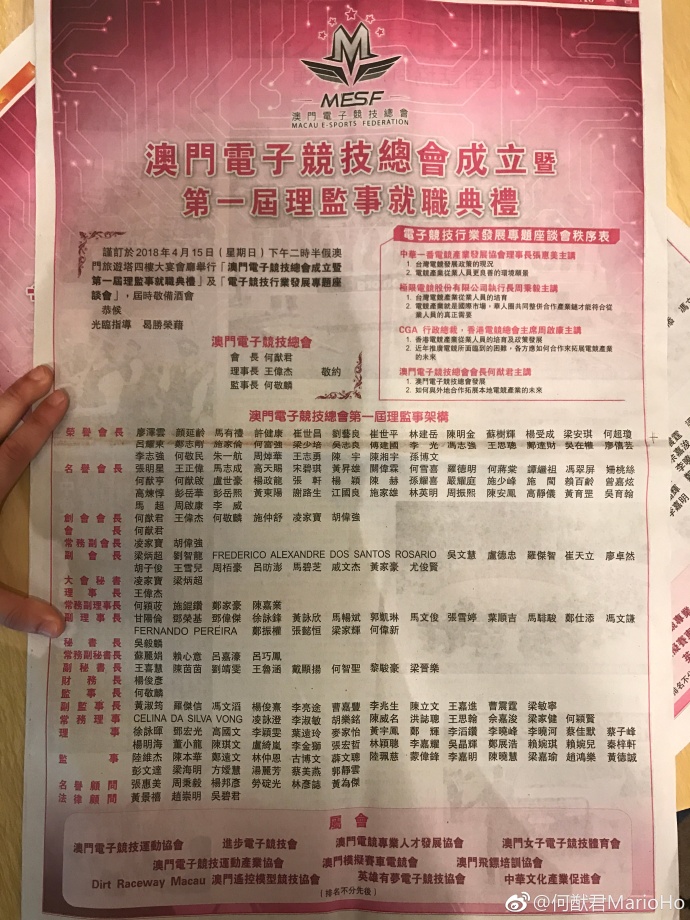 MESF
澳門電子競技總會
MACAU E-SPORTS FEDERATION
澳門電子競技總會成立暨
第一屆理監事就職典禮
謹訂於2018年4月15日（星期日）下午二時半假澳
門旅遊塔四樓大宴會廳舉行「澳門電子競技總會成立暨
第一屆理監事就職典禮」及「電子競技行業發展專題座
談會」，屆時敬備酒會
恭候
光臨指導　曷勝榮藉
澳門電子競技總會
會　長 何猷君
理事長 王偉杰　敬約
監事長 何敬麟
電子競技行業發展專題座談會秩序表
中華一番電競產業發展協會理事長張惠美主講
1. 台灣電競發展政策的現況
2. 電競產業從業人員更良善的環境願量
極限電競股份有限公司執行長周秉毅主講
1. 台灣電競產業從業人員的培育
2. 電競產業就是國際市場，華人圈共同整併合作產業鏈才能符合從
業人員的真正需要
CGA 行政總裁，香港電競總會主席周啟康主講
1. 香港電競產業從業人員的培育及政策發展
2. 近年推廣電競所面臨到的困難，各方應如何合作來拓展電競產業
的未來
澳門電子競技總會會長何猷君主講
1. 澳門電子競技總會發展
2. 如何與外地合作拓展本地電競產業的未來
澳門電子競技總會第一屆理監事架構
榮譽會長 廖澤雲 顏延齡 馬有禮 許健康 崔世昌 劉藝良 崔世平 林建岳 陳明金 蘇樹輝 楊受成 梁安琪 何超瓊
呂耀東 鄭志剛 施家倫 何富強 梁少培 吳志良 傅建國 李光 馮志強 王思聰 鄭達財 吳在權 廖僖芸
李志強 何敬民 朱一航 周焯華 王志勇 陳宇 陳湘宇 孫博文
名譽會長 張明星 王正偉 馬志成 高天賜 宋碧琪 黃昇雄 關偉霖 何雪喜 羅德明 何蔣棠 譚繼祖 馮翠屏 姍桃絲
何猷亨 何猷啟 盧世豪 楊政龍 張軒 楊穎 陳赫 孫耀喜 嚴耀庭 施少峰 施閩 賴百齡 曾嘉炫
高煉惇 彭岳華 彭岳熙 黃東陽 謝路生 江國良 施家雄 林英明 周振熙 陳安鳳 高靜儀 黃育罡 吳育翰
馬超 周啟康 李威
創會會長 何猷君 王偉杰 何敬麟 施仲舒 凌家寶 胡偉強
會長 何猷君
常務副會長 凌家寶 胡偉強
副會長 梁炳超 劉智龍 FREDERICO ALEXANDRE DOS SANTOS ROSARIO 吳文慧 盧德忠 羅傑智 崔天立 廖卓然
胡子俊 王雪兒 周栢豪 呂昉澎 馬碧芝 戚文杰 黃家豪 尤俊賢
大會秘書 凌家寶 梁炳超
理事長 王偉杰
常務副理事長 何穎莜 施錕鑽 鄭家豪 陳嘉業
副理事長 甘陽倫 鄧榮基 鄧偉傑 徐詠鋒 黃詠欣 馬暢斌 郭凱琳 馬文俊 張雪婷 葉順吉 馬聎駿 鄭仕添 馮文謙
FERNANDO PEREIRA 鄭振權 張懿恒 梁家輝 何偉新
秘書長 吳毅麟
常務副秘書長 蘇麗娟 賴心意 呂嘉濠 呂巧鳳
副秘書長 王喜慧 陳茵茵 劉靖雯 王魯涵 戴顯揚 何智聖 黎駿豪 梁晉樂
財務長 楊俊彥
監事長 何敬麟
副監事長 黃淑筠 羅傑信 馮文滔 楊俊熹 李亮途 曹嘉豐 李兆生 陳立文 王嘉進 曹震霆 梁敏寧
常務理事 CELINA DA SILVA VONG 凌詠澄 李淑敏 胡樂銘 陳威名 洪誌聰 王思翰 佘嘉浚 梁家健 何穎賢
理事 徐詠暉 鄧宏光 高國文 李穎雯 葉遠玲 麥家怡 黃宇鳳 鄭輝 李滔鑽 李曉峰 李曉河 蔡佳默 蔡子峰
楊明海 董小龍 陳琪文 盧綺嵐 李金獅 張宏哲 林穎聰 李嘉耀 吳晶輝 鄭展浩 賴婉琪 賴婉兒 秦梓軒
監事 陸維杰 陳本華 鄭遠文 林仲恩 古博文 薜文聰 陸珮慈 蒙偉鋒 李嘉明 陳曉慧 梁嘉瑜 趙鴻樂 黃德誠
彭文達 梁海明 方嬡慧 湯麗芳 蔡美燕 郭靜雲
名譽顧問 張惠美 周秉毅 楊邦彥 勞碇光 林彥誌 黃為傑
法律顧問 黃景禧 趙崇明 吳碧君
屬會
澳門電子競技運動協會 進步電子競技會 澳門電競專業人才發展協會 澳門女子電子競技體育會
澳門電子競技運動產業協會 澳門模擬賽車電競會 澳門飛鏢培訓協會
Dirt Raceway Macau 澳門遙控模型競技協會 英雄有夢電子競技協會 中華文化產業促進會
（排名不分先後）
@何猷君MarioHo